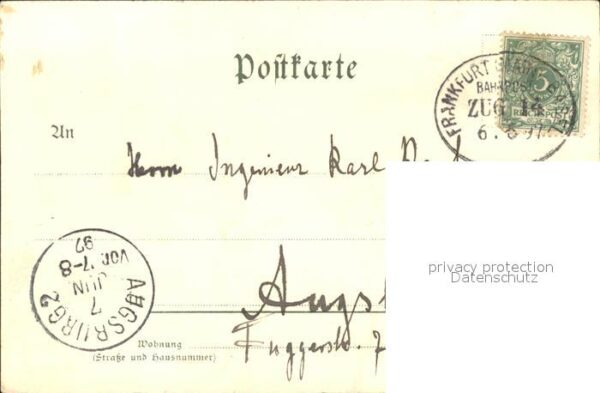 Postkarte
5
REICHSPOST
FRANKFURT
BAHNPOST
ZUG 14
6. 6 97
An
Herrn Ingenieur Karl
privacy protection
Datenschutz
AUGSBURG 2
7
JUN
VOR. 7-8
97
Augs
Fuggerstr. 7
Wohnung
(Straße und Hausnummer)